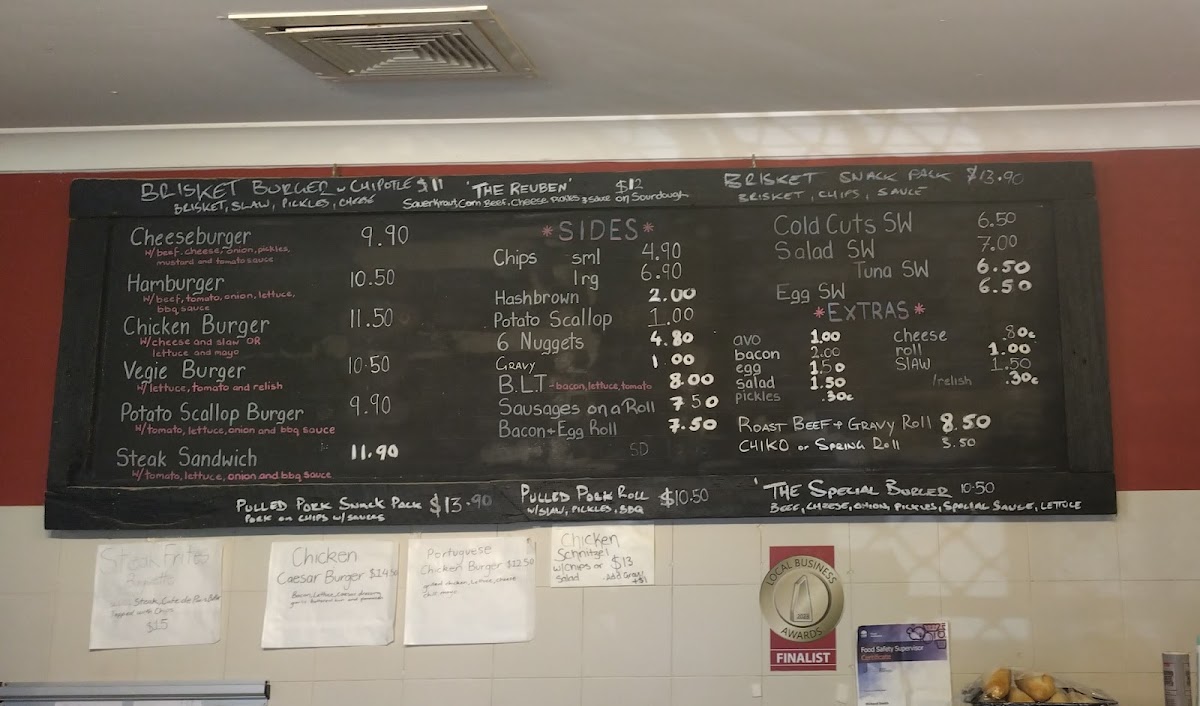 BRISKET BURGER W CHIPOTLE $11
BRISKET, SLAW, PICKLES, CHEESE
'THE REUBEN' $12
Sauerkraut, Corn Beef, Cheese, Pickles & Sauce on Sourdough
BRISKET SNACK PACK $13.90
BRISKET, CHIPS, SAUCE
Cheeseburger 9.90
W/beef, cheese, onion, pickles,
mustard and tomato sauce
Hamburger 10.50
W/beef, tomato, onion, lettuce,
bbq sauce
Chicken Burger 11.50
W/cheese and slaw OR
lettuce and mayo
Vegie Burger 10.50
W/lettuce, tomato and relish
Potato Scallop Burger 9.90
W/tomato, lettuce, onion and bbq sauce
Steak Sandwich 11.90
W/tomato, lettuce, onion and bbq sauce
*SIDES*
Chips sml 4.90
lrg 6.90
Hashbrown 2.00
Potato Scallop 1.00
6 Nuggets 4.80
GRAVY 1.00
B.L.T - bacon, lettuce, tomato 8.00
Sausages on a Roll 7.50
Bacon + Egg Roll 7.50
Cold Cuts SW 6.50
Salad SW 7.00
Tuna SW 6.50
Egg SW 6.50
*EXTRAS*
avo 1.00
bacon 2.00
egg 1.50
salad 1.50
pickles .30c
cheese .80c
roll 1.00
SLAW 1.50
/relish .30c
ROAST BEEF + GRAVY ROLL 8.50
CHIKO OR SPRING ROLL 3.50
PULLED PORK SNACK PACK $13.90
PORK ON CHIPS W/SAUCES
PULLED PORK ROLL $10.50
W/SLAW, PICKLES, BBQ
'THE SPECIAL BURGER 10.50
BEEF, CHEESE, ONION, PICKLES, SPECIAL SAUCE, LETTUCE
Steak Frites
$15
Chicken
Caesar Burger $14.50
Bacon, Lettuce, Caesar dressing,
Portuguese
Chicken Burger $12.50
grilled chicken, lettuce, cheese
chilli mayo
Chicken
Schnitzel
w/chips or $13
Salad add Gravy
+$1
LOCAL BUSINESS
AWARDS
FINALIST
Food Safety Supervisor
Certificate